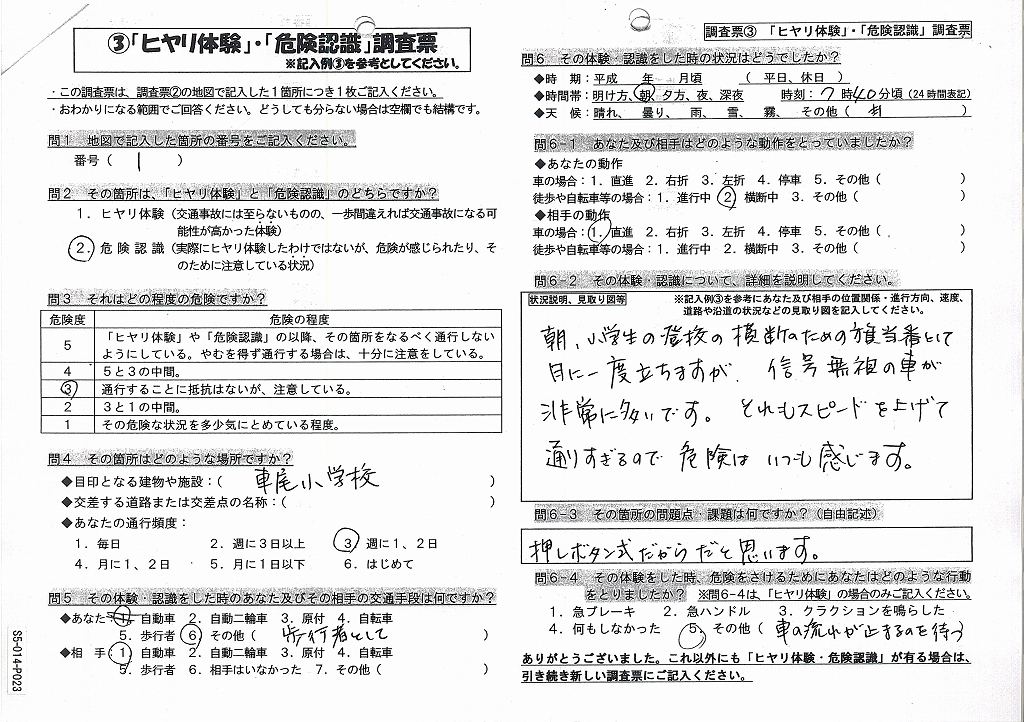 ③「ヒヤリ体験」・「危険認識」調査票
※記入例③を参考としてください。
・この調査票は、調査票②の地図で記入した１箇所につき１枚ご記入ください。
・おわかりになる範囲でご回答ください。どうしても分らない場合は空欄でも結構です。
問１　地図で記入した箇所の番号をご記入ください。
番号（　1　）
問２　その箇所は、「ヒヤリ体験」と「危険認識」のどちらですか？
１．ヒヤリ体験（交通事故には至らないものの、一歩間違えれば交通事故になる可
能性が高かった体験）
２．危険認識（実際にヒヤリ体験したわけではないが、危険が感じられたり、そ
のために注意している状況）
問３　それはどの程度の危険ですか？
危険度　危険の程度
５　「ヒヤリ体験」や「危険認識」の以降、その箇所をなるべく通行しない
ようにしている。やむを得ず通行する場合は、十分に注意をしている。
４　５と３の中間。
３　通行することに抵抗はないが、注意している。
２　３と１の中間。
１　その危険な状況を多少気にとめている程度。
問４　その箇所はどのような場所ですか？
◆目印となる建物や施設：（　車尾小学校　）
◆交差する道路または交差点の名称：（　）
◆あなたの通行頻度：
１．毎日　２．週に３日以上　３．週に１、２日
４．月に１、２日　５．月に１日以下　６．はじめて
問５　その体験・認識をした時のあなた及びその相手の交通手段は何ですか？
◆あなた：１．自動車　２．自動二輪車　３．原付　４．自転車
５．歩行者　６．その他（　歩行者として　）
◆相　手：１．自動車　２．自動二輪車　３．原付　４．自転車
５．歩行者　６．相手はいなかった　７．その他（　）
S5-014-P023
調査票③　「ヒヤリ体験」・「危険認識」調査票
問６　その体験・認識をした時の状況はどうでしたか？
◆時　期：平成　年　月頃　（　平日、休日　）
◆時間帯：明け方、朝、夕方、夜、深夜　時刻：7時40分頃（24時間表記）
◆天　候：晴れ、　曇り、　雨、　雪、　霧、　その他（　）
問６-１　あなた及び相手はどのような動作をとっていましたか？
◆あなたの動作
車の場合：１．直進　２．右折　３．左折　４．停車　５．その他（　）
徒歩や自転車等の場合：１．進行中　２．横断中　３．その他（　）
◆相手の動作
車の場合：１．直進　２．右折　３．左折　４．停車　５．その他（　）
徒歩や自転車等の場合：１．進行中　２．横断中　３．その他（　）
問６-２　その体験・認識について、詳細を説明してください。
状況説明、見取り図等　※記入例③を参考にあなた及び相手の位置関係・進行方向、速度、
道路や沿道の状況などの見取り図を記入してください。
朝、小学生の登校の横断のための旗当番として
月に一度立ちますが、信号無視の車が
非常に多いです。それもスピードを上げて
通りすぎるので危険はいつも感じます。
問６-３　その箇所の問題点・課題は何ですか？（自由記述）
押しボタン式だからだと思います。
問６-４　その体験をした時、危険をさけるためにあなたはどのような行動
をとりましたか？　※問６-４は、「ヒヤリ体験」の場合のみご記入ください。
１．急ブレーキ　２．急ハンドル　３．クラクションを鳴らした
４．何もしなかった　５．その他（車の流れが止まるのを待つ）
ありがとうございました。これ以外にも「ヒヤリ体験・危険認識」が有る場合は、
引き続き新しい調査票にご記入ください。